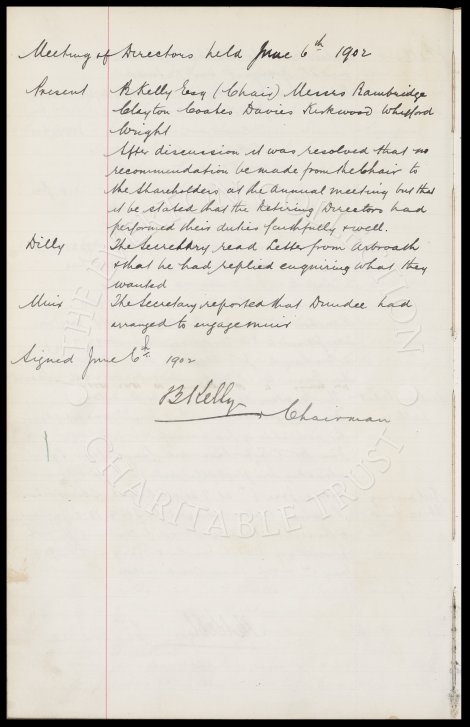 Meeting of Directors held June 6th 1902
Present B Kelly Esq (Chair) Messrs Bambridge
Clayton Coates Davies Kirkwood Whitford
Wright
After discussion it was resolved that no
recommendation be made from the Chair to
the Shareholders at the Annual meeting but that
it be stated that the Retiring Directors had
performed their duties faithfully & well.
Dilly The Secretary read Letter from Arbroath
& that he had replied enquiring what they
wanted
Muir The Secretary reported that Dundee had
arranged to engage Muir
Signed June 6th 1902
B Kelly
Chairman
CHARITABLE TRUST